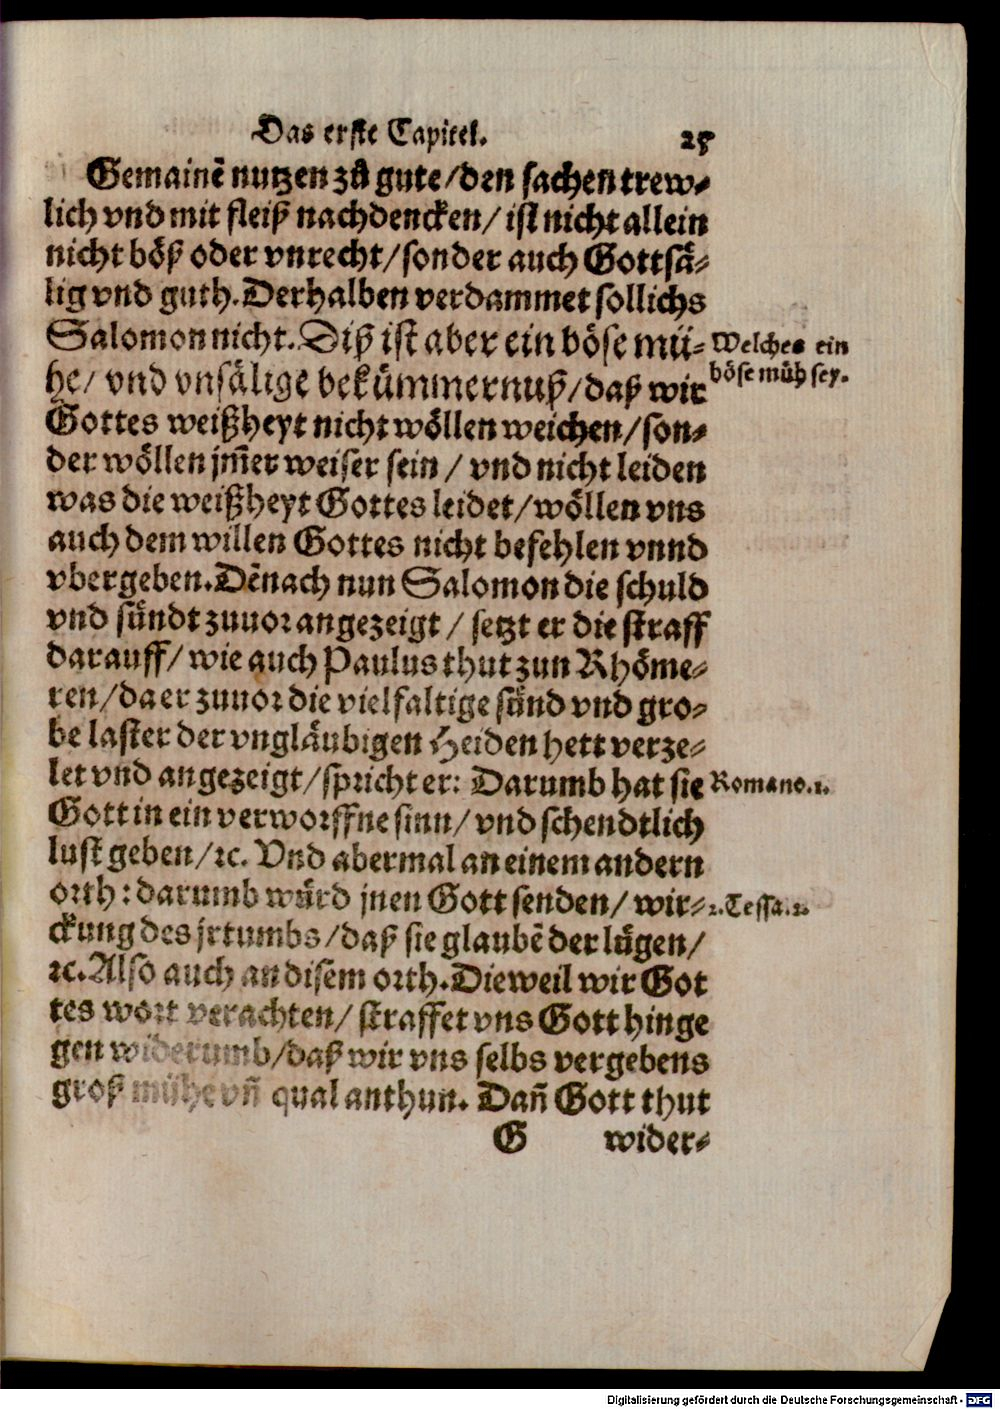 Das erste Capitel. 25
Gemainē nutzen zů gute/den sachen trew⸗
lich vnd mit fleiß nachdencken/ ist nicht allein
nicht böß oder vnrecht/sonder auch Gottsä⸗
lig vnd guth. Derhalben verdammet sollichs
Salomon nicht. Diß ist aber ein böse mü⸗
he/ vnd vnsälige bekümmernuß/daß wir
Welches ein
böse müh sey.
Gottes weißheyt nicht wöllen weichen/son⸗
der wöllen jm̄er weiser sein / vnd nicht leiden
was die weißheyt Gottes leidet/wöllen vns
auch dem willen Gottes nicht befehlen vnnd
vbergeben. Dēnach nun Salomon die schuld
vnd sündt zuuor angezeigt / setzt er die straff
darauff/ wie auch Paulus thut zun Rhöme⸗
ren/da er zuuor die vielfaltige sünd vnd gro⸗
be laster der vngläubigen Heiden hett verze⸗
let vnd angezeigt/spricht er: Darumb hat sie
Romano.1.
Gott in ein verworffne sinn/ vnd schendtlich
lust geben/ꝛc. Vnd abermal an einem andern
orth: darumb würd jnen Gott senden/ wir⸗
2.Tessa.2.
ckung des jrtumbs/daß sie glaubē der lügen/
ꝛc. Also auch an disem orth. Dieweil wir Got
tes wort verachten/ straffet vns Gott hinge
gen widerumb/daß wir vns selbs vergebens
groß mühe vn̄ qual anthun. Dan̄ Gott thut
G wider⸗
Digitalisierung gefördert durch die Deutsche Forschungsgemeinschaft - DFG